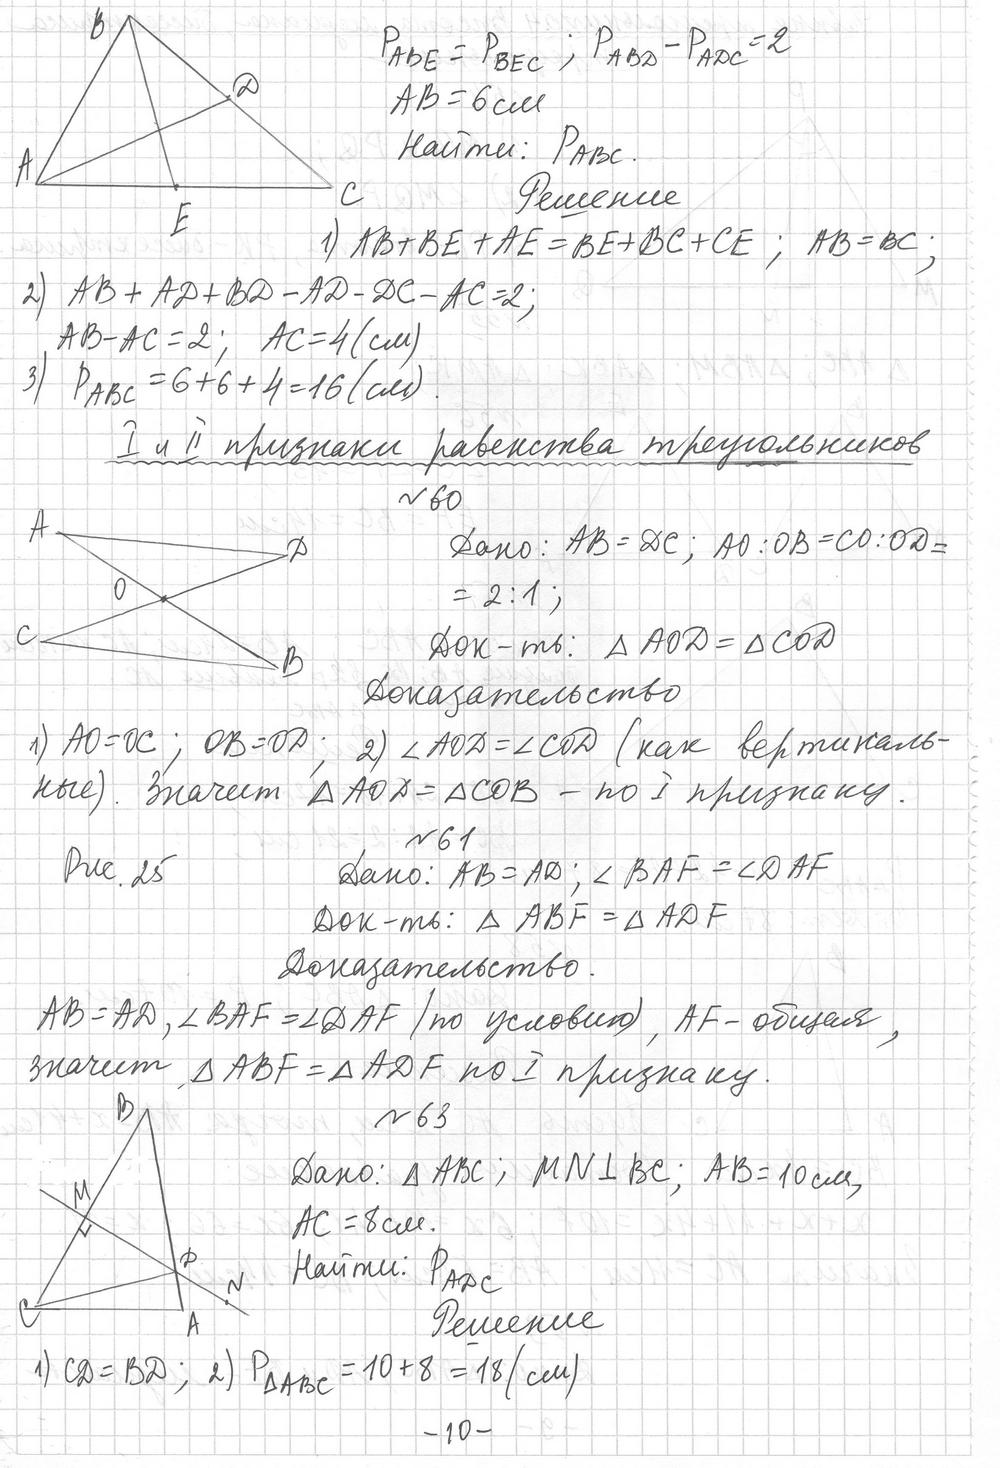 B
D
A
C
E
P_ABE = P_BEC ; P_ABD - P_ADC = 2
AB = 6 см
Найти: P_ABC.
Решение
1) AB + BE + AE = BE + BC + CE ; AB = BC ;
2) AB + AD + BD - AD - DC - AC = 2;
AB - AC = 2; AC = 4 (см)
3) P_ABC = 6 + 6 + 4 = 16 (см).
I и II признаки равенства треугольников
№60
A
D
O
C
B
Дано: AB = DC; AO : OB = CO : OD =
= 2 : 1 ;
Док-ть: △ AOD = △ COD
Доказательство
1) AO = OC ; OB = OD; 2) ∠AOD = ∠COD (как вертикаль-
ные). Значит △ AOD = △COB - по I признаку.
№61
Рис. 25
Дано: AB = AD; ∠BAF = ∠DAF
Док-ть: △ ABF = △ ADF
Доказательство.
AB = AD, ∠BAF = ∠DAF (по условию), AF - общая,
значит △ ABF = △ ADF по I признаку.
№63
B
M
D
N
C
A
Дано: △ ABC; MN ⊥ BC; AB = 10 см,
AC = 8 см.
Найти: P_ADC
Решение
1) CD = BD; 2) P_△ABC = 10 + 8 = 18 (см)
-10-